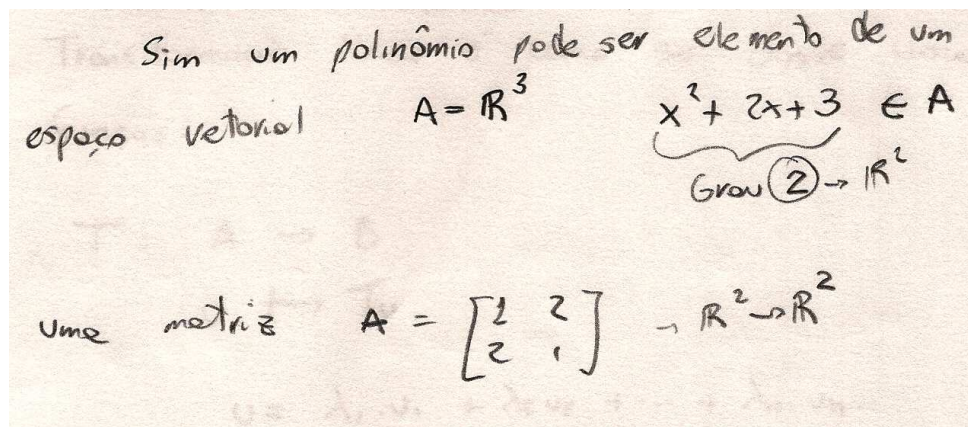 Sim um polinômio pode ser elemento de um
espaço vetorial A = ℝ³ x² + 2x + 3 ∈ A
Grau 2 → ℝ²
uma matriz A = [1 2
2 1] → ℝ² → ℝ²